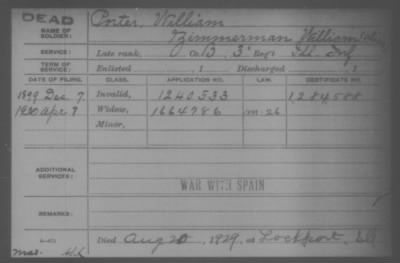 DEAD
NAME OF SOLDIER: Porter, William
Zimmerman William
SERVICE: Late rank, Co. B, 3' Reg't Ill. Inf
TERM OF SERVICE: Enlisted , 1 Discharged , 1
DATE OF FILING. CLASS. APPLICATION NO. LAW. CERTIFICATE NO.
1899 Dec 7. Invalid, 1240533 1284588
1930 Apr 7 Widow, 1664786
Minor,
ADDITIONAL SERVICES:
WAR WITH SPAIN
REMARKS:
Died Aug 20, 1929, at Lockport, Ill